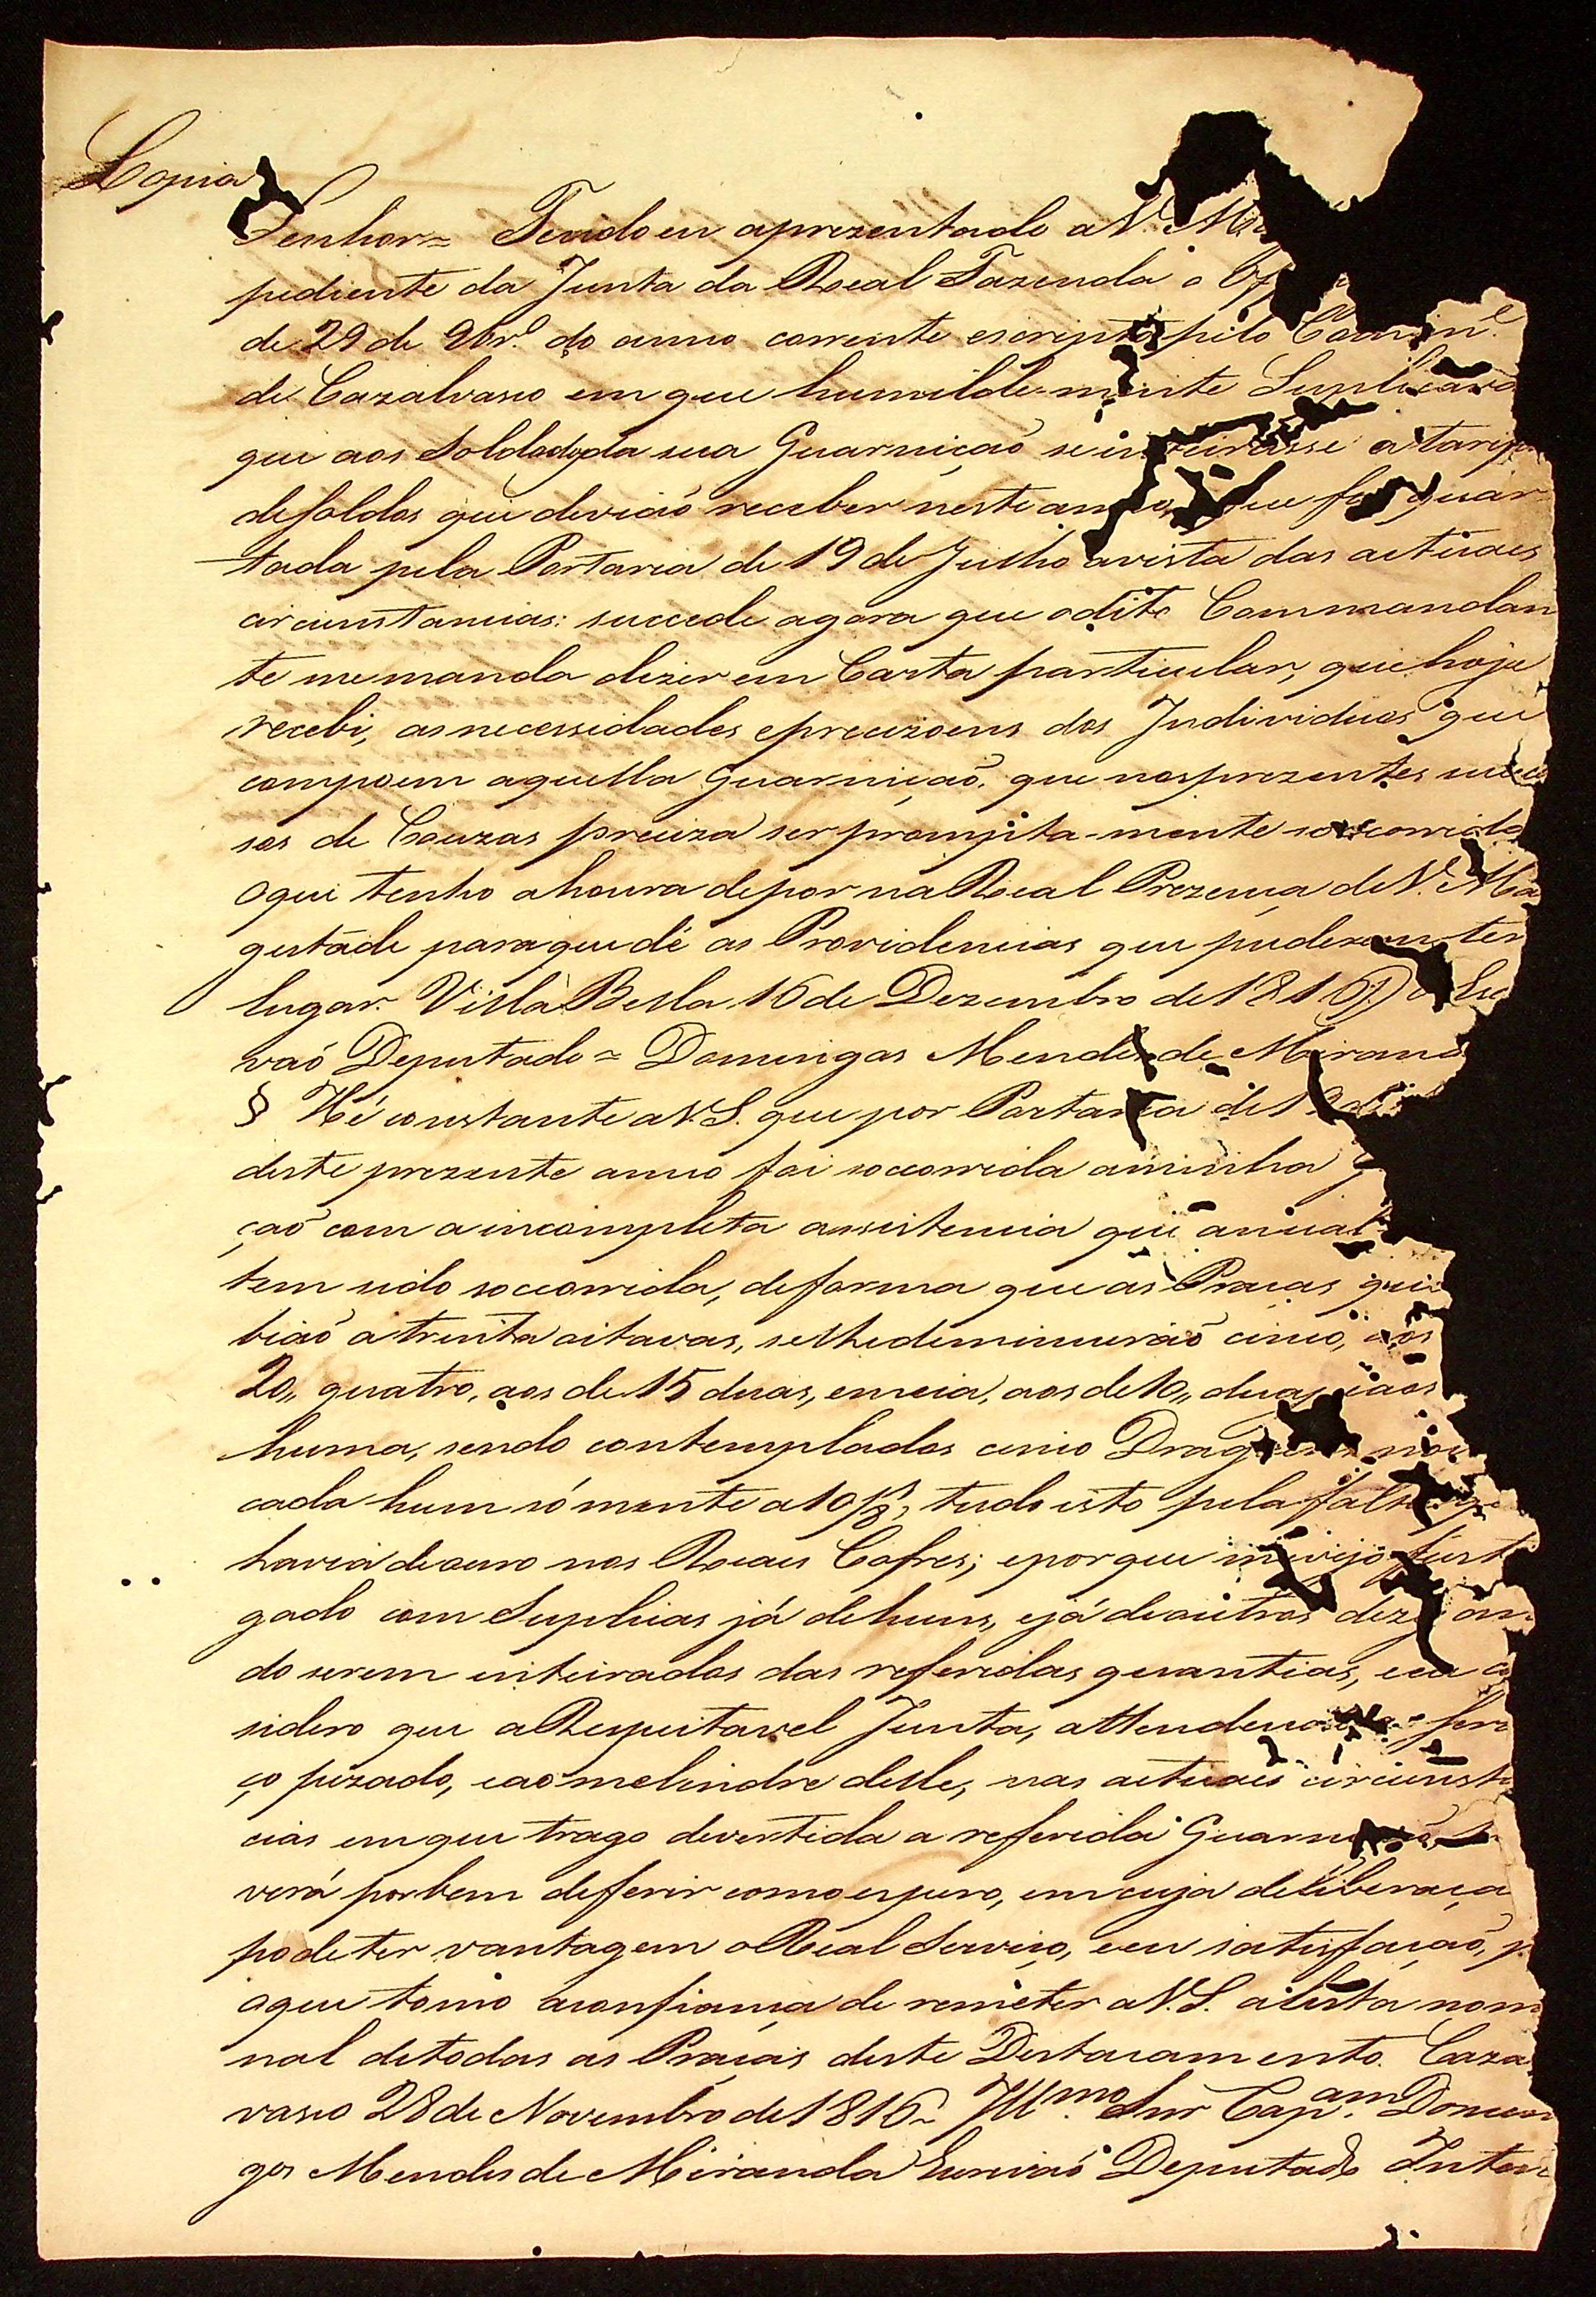 Copia
Senhor = Tendo eu aprezentado a V. Ma
pediente da Junta da Real Fazenda o Of
de 29 de 9br.º do anno corrente escripto pelo Comm.e
de Cazalvasco em que humilde-mente Suplicava
que aos Soldados da sua Guarnição se inteirasse a tarifa
de soldos que devião receber neste anno, que foi quar
tada pela Portaria de 19 de Julho avista das actuaes
circunstancias: succede agora que o dito Commandan
te me manda dizer em Carta particular, que hoje
recebi, as necessidades e precizoens dos Individuos que
compoem aquella Guarnição, que nos prezentes succe
sos de Couzas preciza ser prompta-mente soccorrida
O que tenho a honra de por na Real Prezença de V. Ma
gestade para que dê as Providencias que puderem ter
lugar. Villa Bella 16 de Dezembro de 1816 // o Escr
vaõ Deputado = Domingos Mendes de Mirand
§ Hé constante a V.S. que por Portaria de 19 de
deste prezente anno foi soccorrida a minha G
çaõ com a incompleta assistencia que anual
tem sido soccorrida, de forma que as Praças que
biaõ a trinta oitavas, se lhe deminuiraõ cinco, aos
20,, quatro, aos de 15 duas, e meia, aos de 10,, duas, e aos
huma, sendo contemplados cinco Dragoens
cada hum sómente a 10/8.s, tudo isto pela falta q
havia de ouro nos Reaes Cofres; e porque me vejo fust
gado com Suplicas já de huns, e já de outros dezejan
do serem inteirados das referidas quantias, eu co
sidero que a Respeitavel Junta, attendendo ao servi
ço pezado, e ao melindre delle, nas actuaes circunsta
cias em que trago devertida a referida Guarnição, ha
verá por bem defferir como espero, em cuja deliberaça
pode ter vantagem o Real Serviço, e eu satisfaçaõ, p.
o que tomo a confiança de remeter a V.S. a lista nomi
nal de todas as Praças deste Destacamento. Cazal
vasco 28 de Novembro de 1816 = Ill.mo Snr Cap.am Domin
gos Mendes de Miranda Escrivaõ Deputado Inter